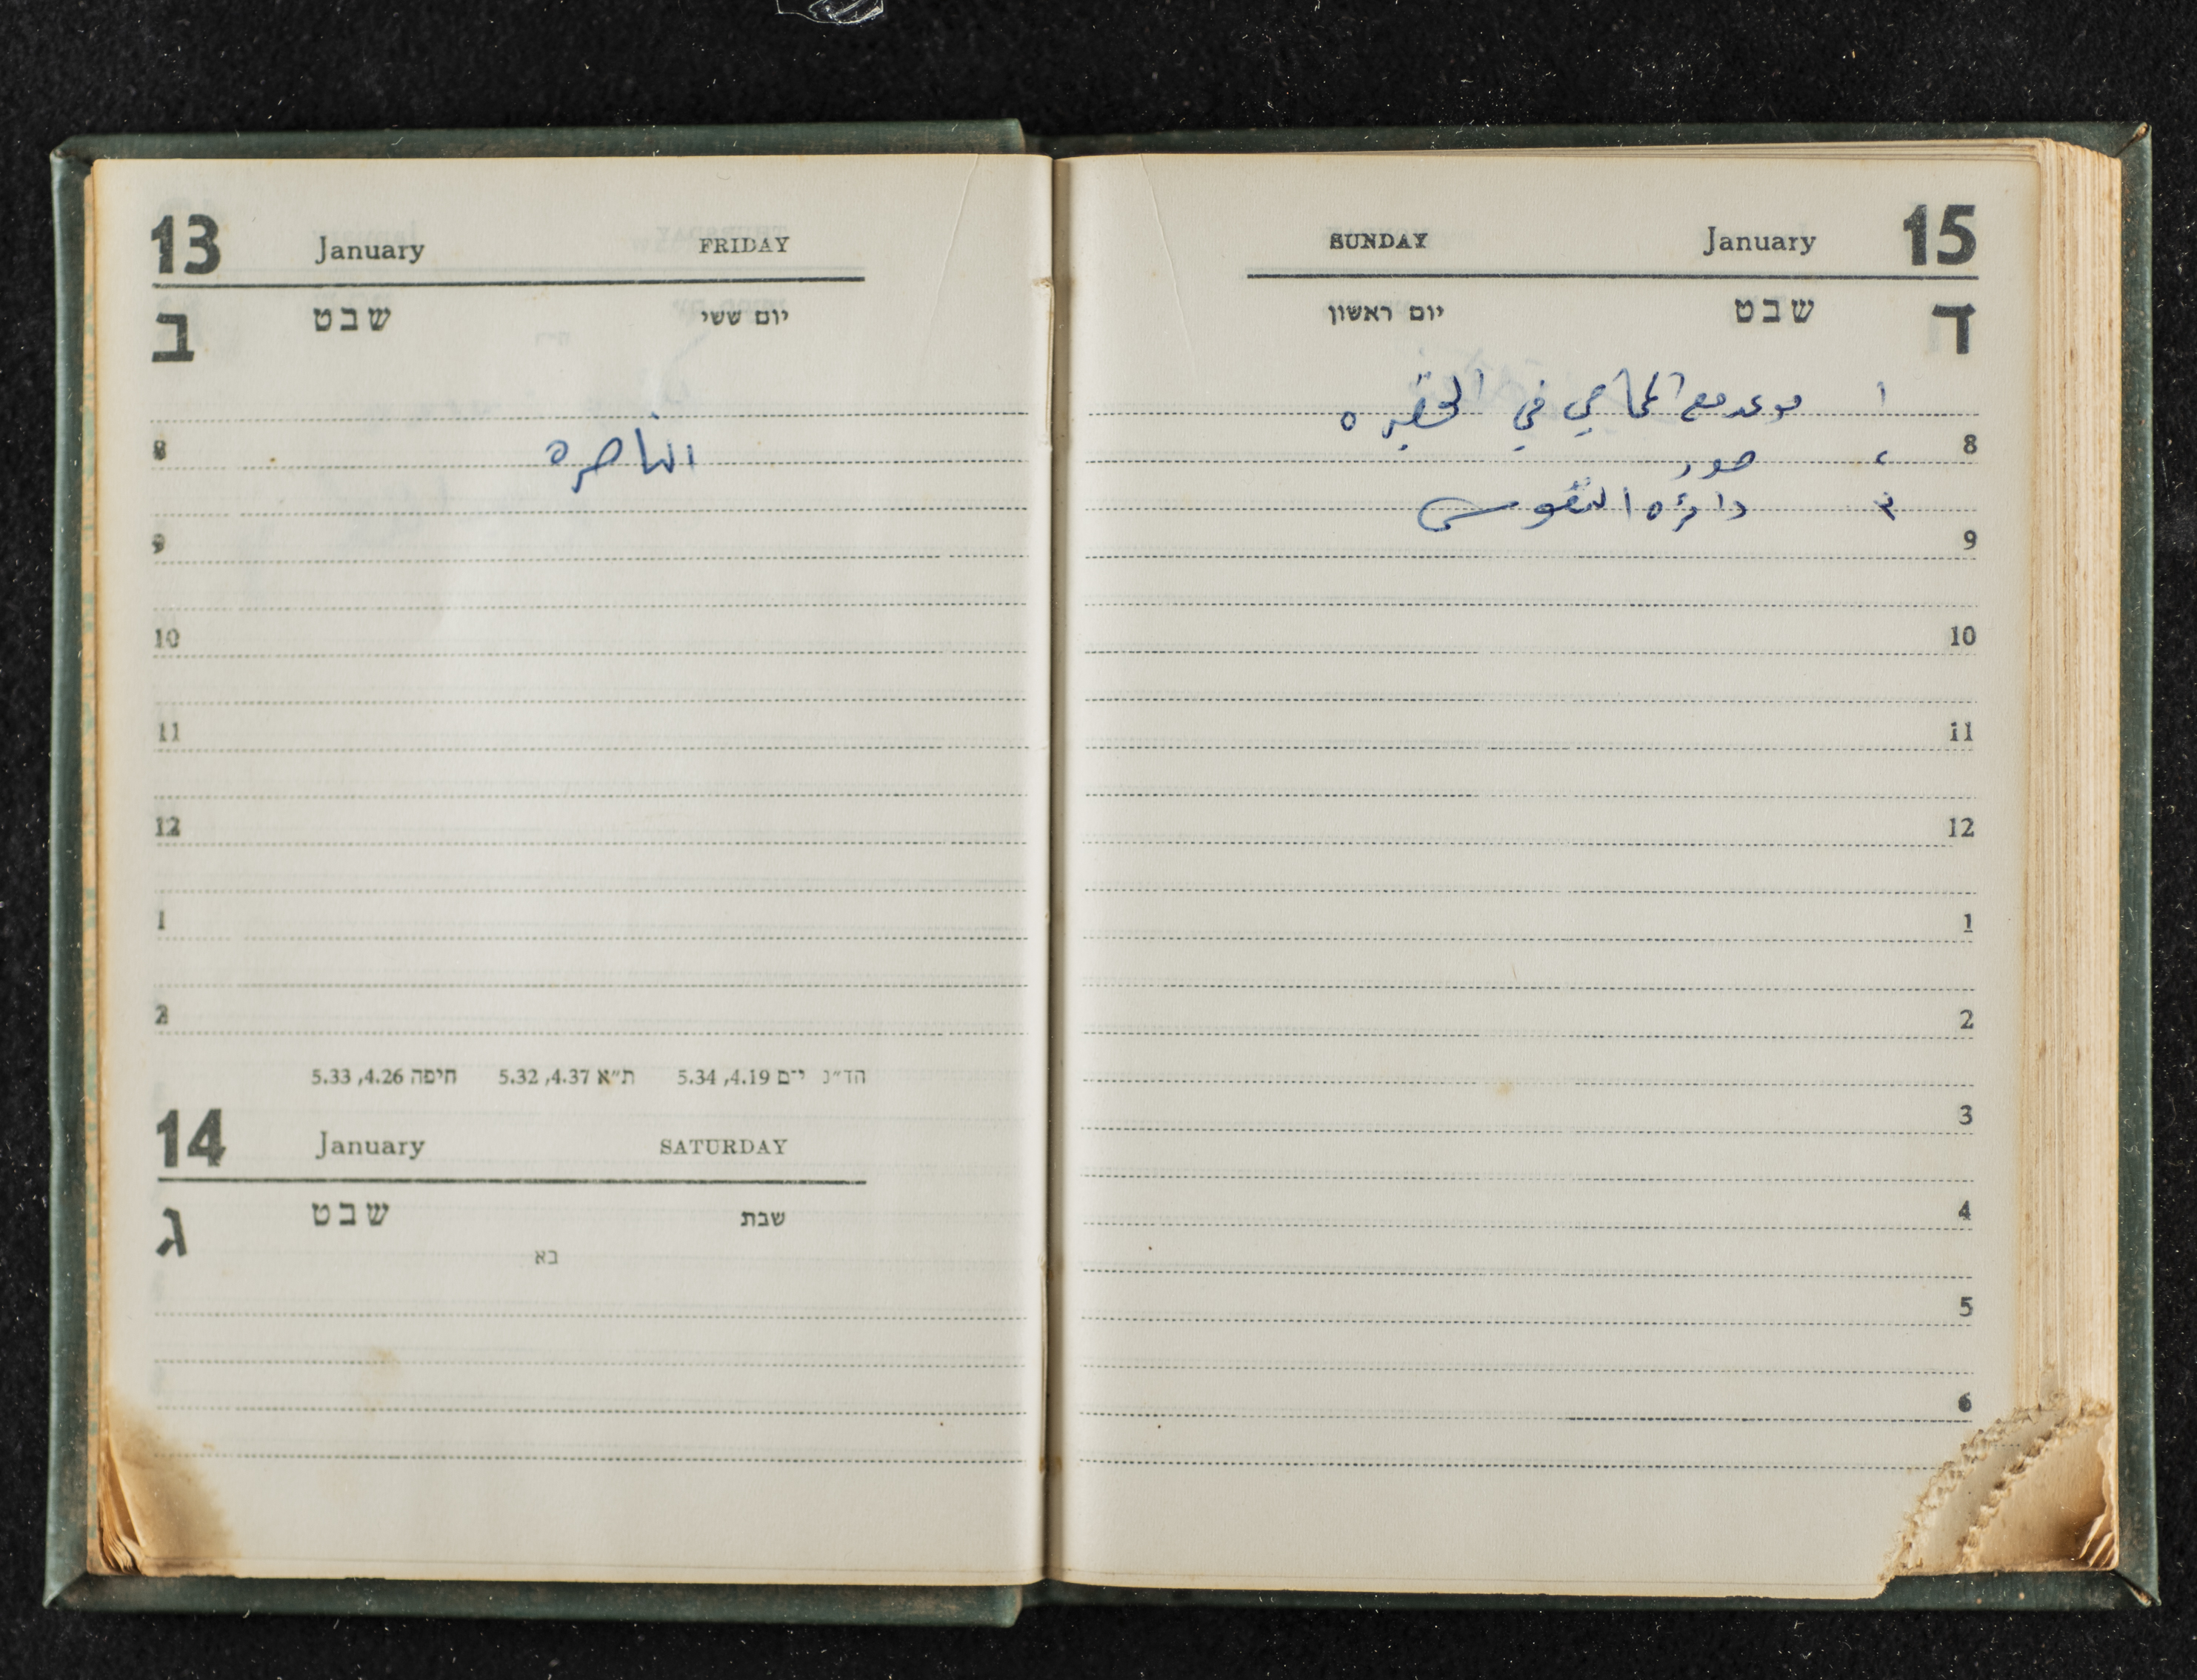 13 January FRIDAY
ב שבט יום ששי
8 الناصره
9
10
11
12
1
2
הד״נ י־ם 4.19, 5.34 ת״א 4.37, 5.32 חיפה 4.26, 5.33
14 January SATURDAY
ג שבט שבת
בא
SUNDAY January 15
ד שבט יום ראשון
١ موعد مع المحامي في الخضيره
8 ٢ صور
٣ دائره النفوس
9
10
11
12
1
2
3
4
5
6